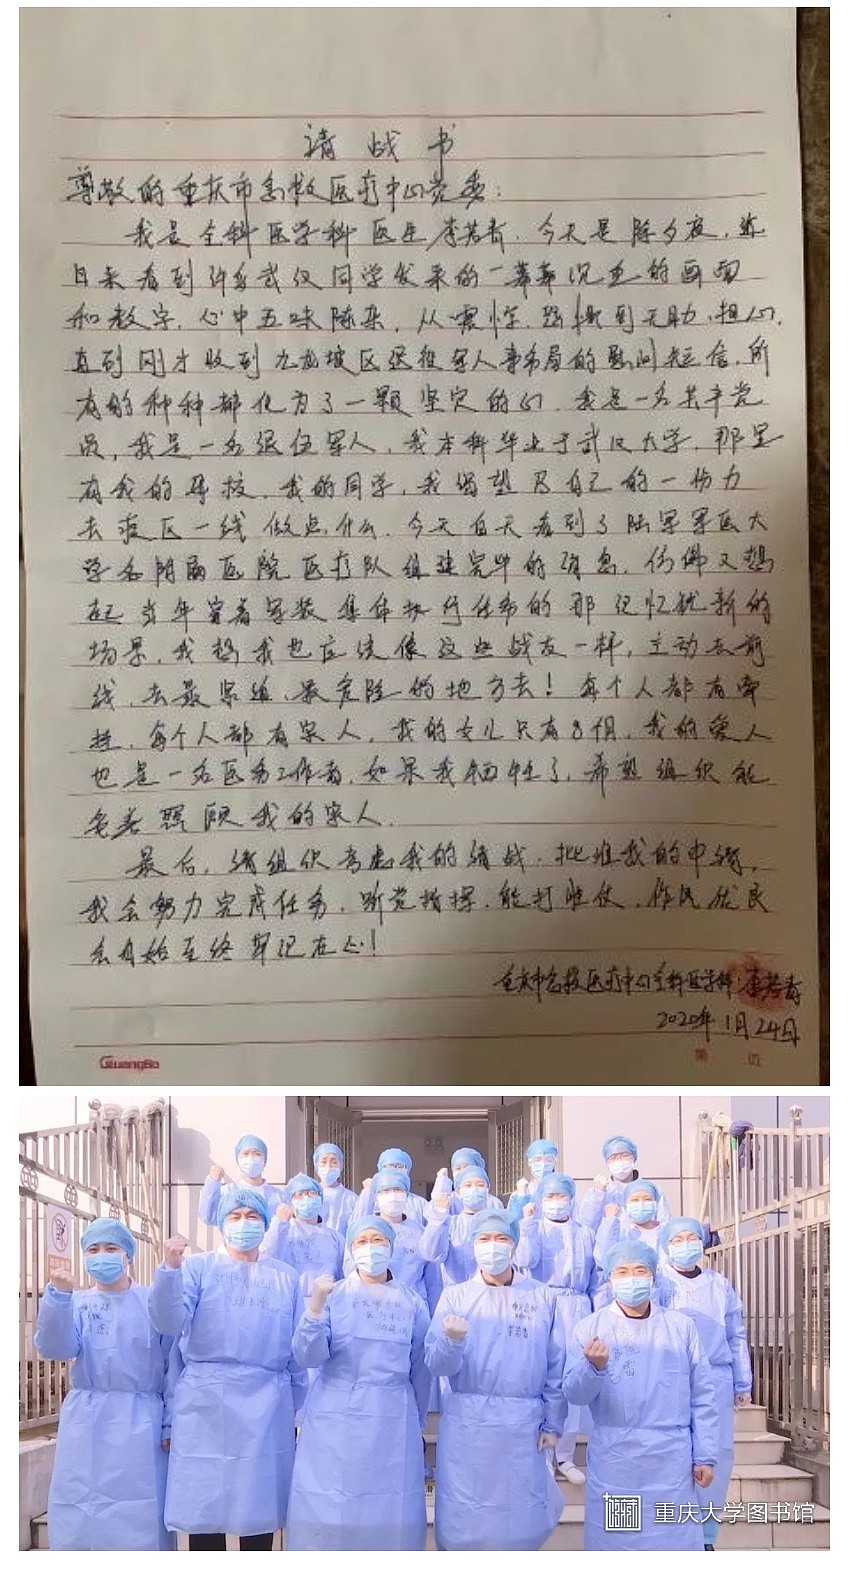 请战书
尊敬的重庆市急救医疗中心党委：
我是全科医学科医生李若青，今天是除夕夜，近
日来看到许多武汉同学发来的一幕幕沉重的画面
和数字，心中五味陈杂，从震惊、到无助、担心，
直到刚才收到九龙坡区退役军人事务局的慰问短信，所
有的种种都化为了一颗坚定的心，我是一名共产党
员，我是一名退伍军人，我本科毕业于武汉大学，那里
有我的母校，我的同学，我渴望尽自己的一份力
去疫区一线做点什么，今天白天看到了陆军军医大
学各附属医院医疗队组建完毕的消息，仿佛又想
起当年穿着军装集体执行任务的那记忆犹新的
场景，我想我也应该像这些战友一样，主动去前
线，去最紧组、最危险的地方去！每个人都有牵
挂，每个人都有家人，我的女儿只有8个月，我的爱人
也是一名医务工作者，如果我牺牲了，希望组织能
妥善照顾我的家人。
最后，请组织考虑我的请战，批准我的申请，
我会努力完成任务，听党指挥，能打胜仗，作风优良
会自始至终牢记在心！
重庆市急救医疗中心全科医学科：李若青
2020年1月24日
GuangBo
第 页
李若青
重庆大学图书馆